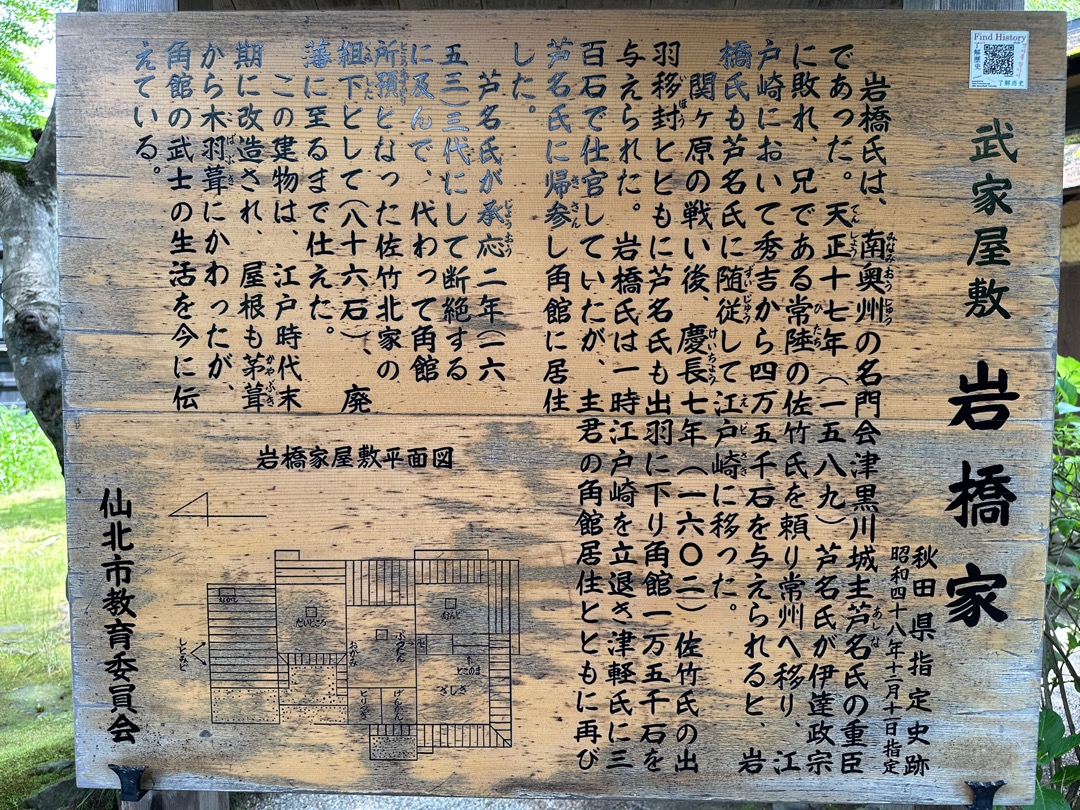 Find History
了解歴史
了解历史
武家屋敷 岩橋家
秋田県指定史跡
昭和四十八年十二月十一日指定
岩橋氏は、南奥州の名門会津黒川城主芦名氏の重臣
みなみおうしゅう
あしな
であった。天正十七年(一五八九)芦名氏が伊達政宗
てんしょう
に敗れ、兄である常陸の佐竹氏を頼り常州へ移り、江
ひたち
戸崎において秀吉から四万五千石を与えられると、岩
橋氏も芦名氏に随従して江戸崎に移った。
ずいじゅう
えどさき
関ヶ原の戦い後、慶長七年(一六〇二)佐竹氏の出
けいちょう
羽移封とともに芦名氏も出羽に下り角館一万五千石を
いほう
与えられた。岩橋氏は一時江戸崎を立退き津軽氏に三
百石で仕官していたが、主君の角館居住とともに再び
芦名氏に帰参し角館に居住
きさん
した。
芦名氏が承応二年(一六
じょうおう
五三)三代にして断絶する
に及んで、代わって角館
所預となった佐竹北家の
ところあずかり
組下として(八十六石)、廃
くみした
藩に至るまで仕えた。
この建物は、江戸時代末
期に改造され、屋根も茅葺
かやぶき
から木羽葺にかわったが、
こばぶき
角館の武士の生活を今に伝
えている。
岩橋家屋敷平面図
なんど
だいどころ
ぶつだん
おかみ
とこのま
ざしき
げんかん
とりつぎ
仙北市教育委員会